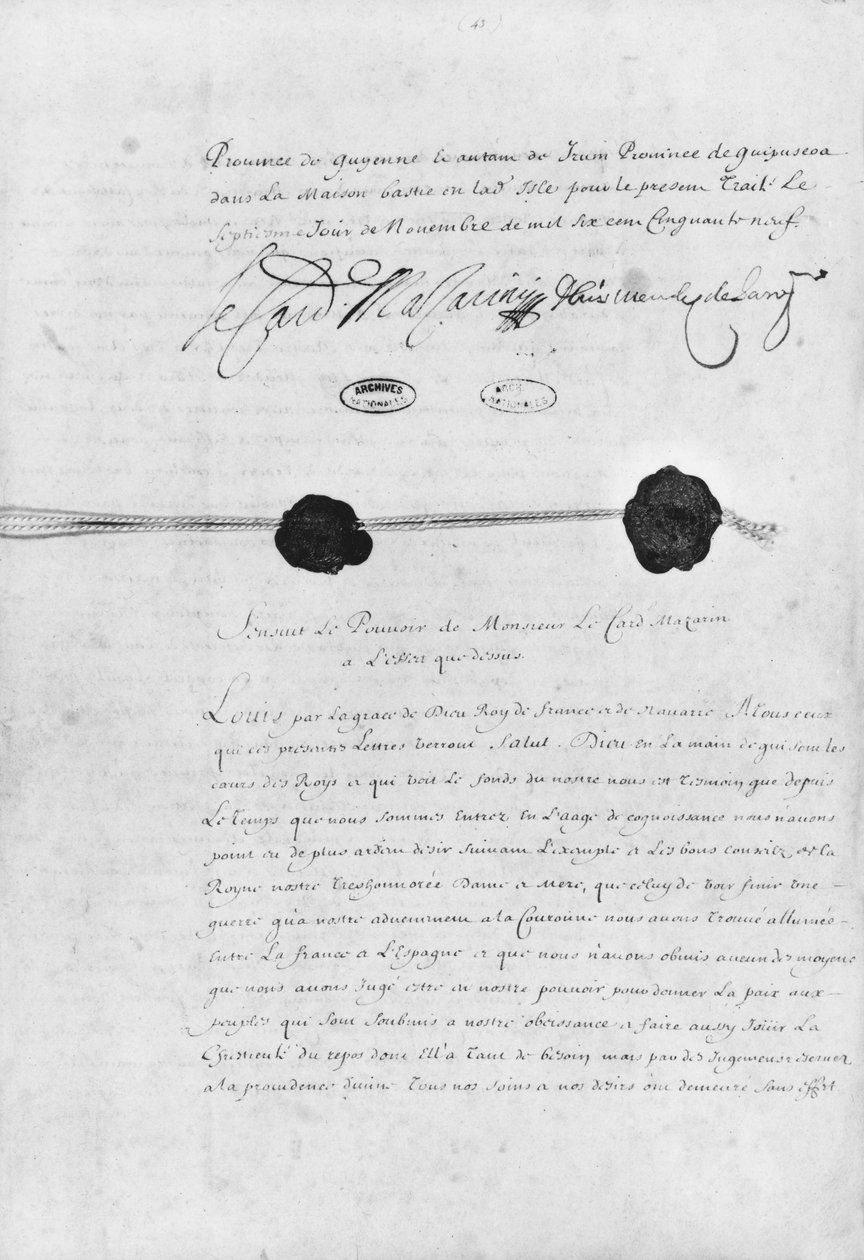 (43)
Prouince de guyenne & autam de Irun Prouince de guipuscoa
dans La Maison bastie en lad. Isle pour le present Traité Le
septiesme Jour de Nouembre de mil six cens Cinquante neuf.
le Card. Mazarini D Luis Mendez de Haro
ARCHIVES NATIONALES
ARCH. NATIONALES
S'ensuit Le Pouuoir de Monsieur Le Card.l Mazarin
a L'effect que dessus.
Louis par La grace de Dieu Roy de france et de Nauarre A tous ceux
que ces presentes Lettres verront Salut. Dieu en La main de qui sont les
cœurs des Roys et qui voit Le fonds du nostre nous est tesmoin que depuis
Le temps que nous sommes Entrez En L'aage de cognoissance nous n'auons
point eu de plus ardent desir suiuant L'exemple et Les bons conseilz de la
Royne nostre treshonnorée Dame et Mere, que celuy de voir finir vne
guerre qu'a nostre aduenement a la Couronne nous auons trouué allumée
Entre La france et L'Espagne et que nous n'auons obmis aucun des moyens
que nous auons Jugé estre en nostre pouuoir pour donner La paix aux
peuples qui sont soubmis a nostre obeissance et faire aussy Joüir La
Chrestienté du repos dont Ell'a tant de besoin mais par des Jugemens reseruez
a la prouidence diuine tous nos soins et nos desirs ont demeuré sans effect